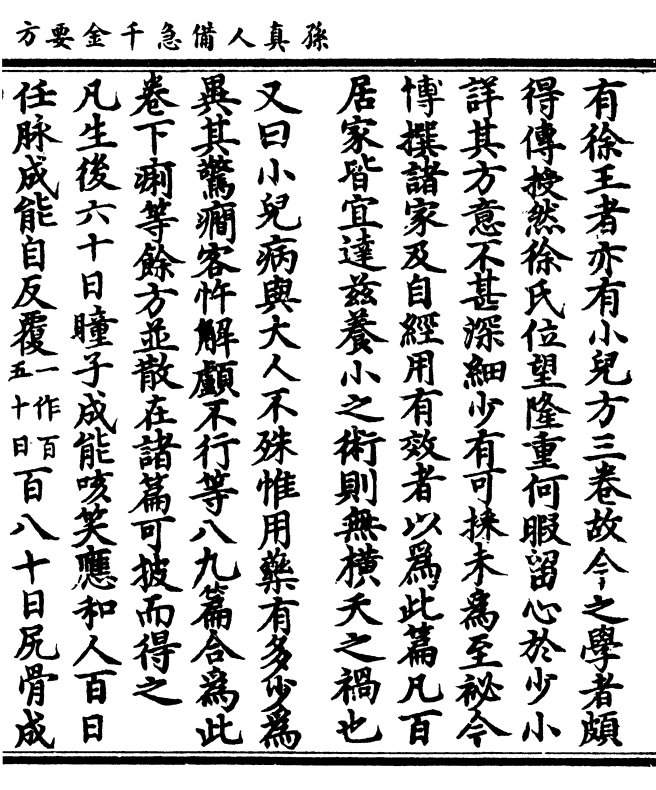 孫真人備急千金要方
有徐王者亦有小兒方三卷故今之學者頗
得傳授然徐氏位望隆重何暇留心於少小
詳其方意不甚深細少有可採未為至祕今
博撰諸家及自經用有效者以為此篇凡百
居家皆宜達茲養小之術則無橫夭之禍也
又曰小兒病與大人不殊惟用藥有多少為
異其驚癇客忤解顱不行等八九篇合為此
卷下痢等餘方並散在諸篇可披而得之
凡生後六十日瞳子成能咳笑應和人百日
任脉成能自反覆一作百五十日百八十日尻骨成